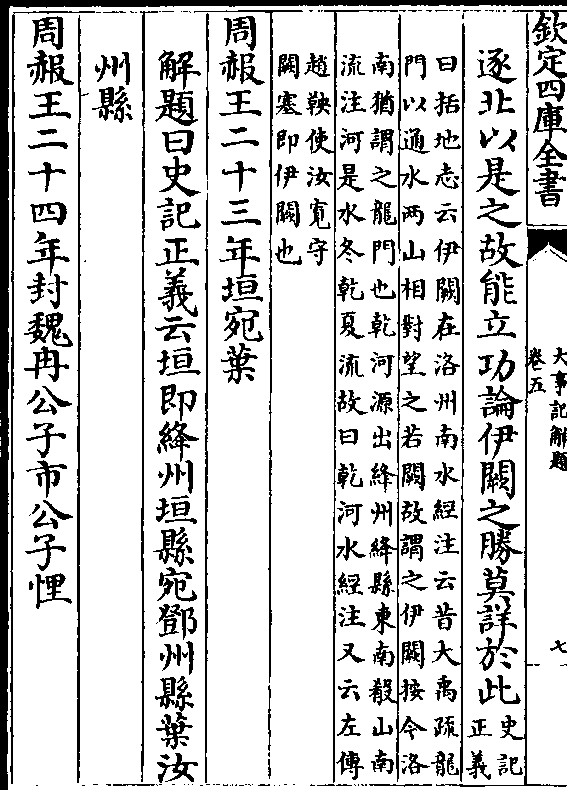 欽定四庫全書
大事記解題
卷五
七
逐北以是之故能立功論伊闕之勝莫詳於此
史記
正義
曰括地志云伊闕在洛州南水經注云昔大禹疏龍
門以通水兩山相對望之若闕故謂之伊闕按今洛
南猶謂之龍門也乾河源出絳州絳縣東南殽山南
流注河是水冬乾夏流故曰乾河水經注又云左傳
趙鞅使汝寬守
闕塞即伊闕也
周赧王二十三年垣宛葉
解題曰史記正義云垣即絳州垣縣宛鄧州縣葉汝
州縣
周赧王二十四年封魏冉公子市公子悝